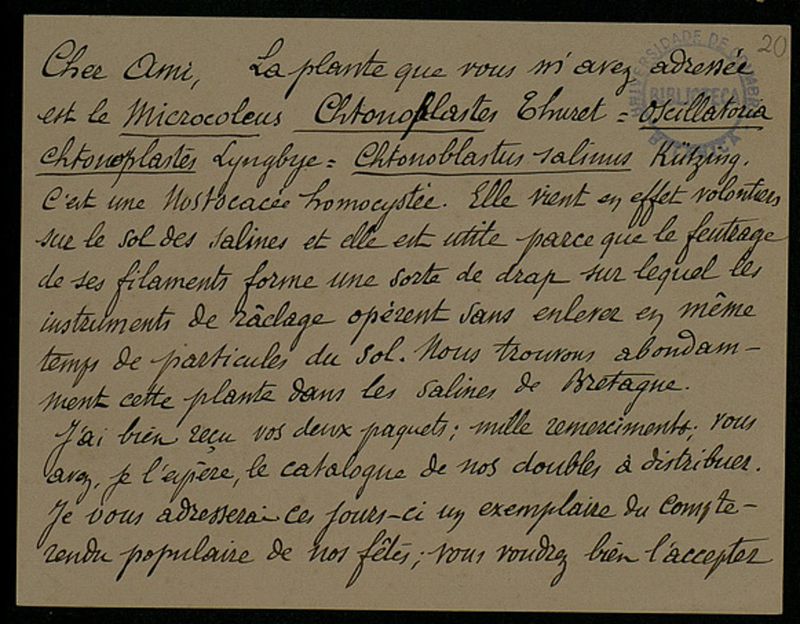 20
UNIVERSIDADE DE COIMBRA
BIBLIOTECA
BOTANICA
Cher Ami, La plante que vous m'avez adressée
est le Microcoleus Chtonoplastes Thuret = Oscillatoria
Chtonoplastes Lyngbye = Chtonoblastus salinus Kützing.
C'est une Nostocacée homocystée. Elle vient en effet volontiers
sur le sol des salines et elle est utile parce que le feutrage
de ses filaments forme une sorte de drap sur lequel les
instruments de râclage opèrent sans enlever en même
temps de particules du sol. Nous trouvons abondam-
ment cette plante dans les salines de Bretagne.
J'ai bien reçu vos deux paquets; mille remerciments; vous
avez, je l'espère, le catalogue de nos doubles à distribuer.
Je vous adresserai ces jours-ci un exemplaire du Compte-
rendu populaire de nos fêtes; vous voudrez bien l'accepter